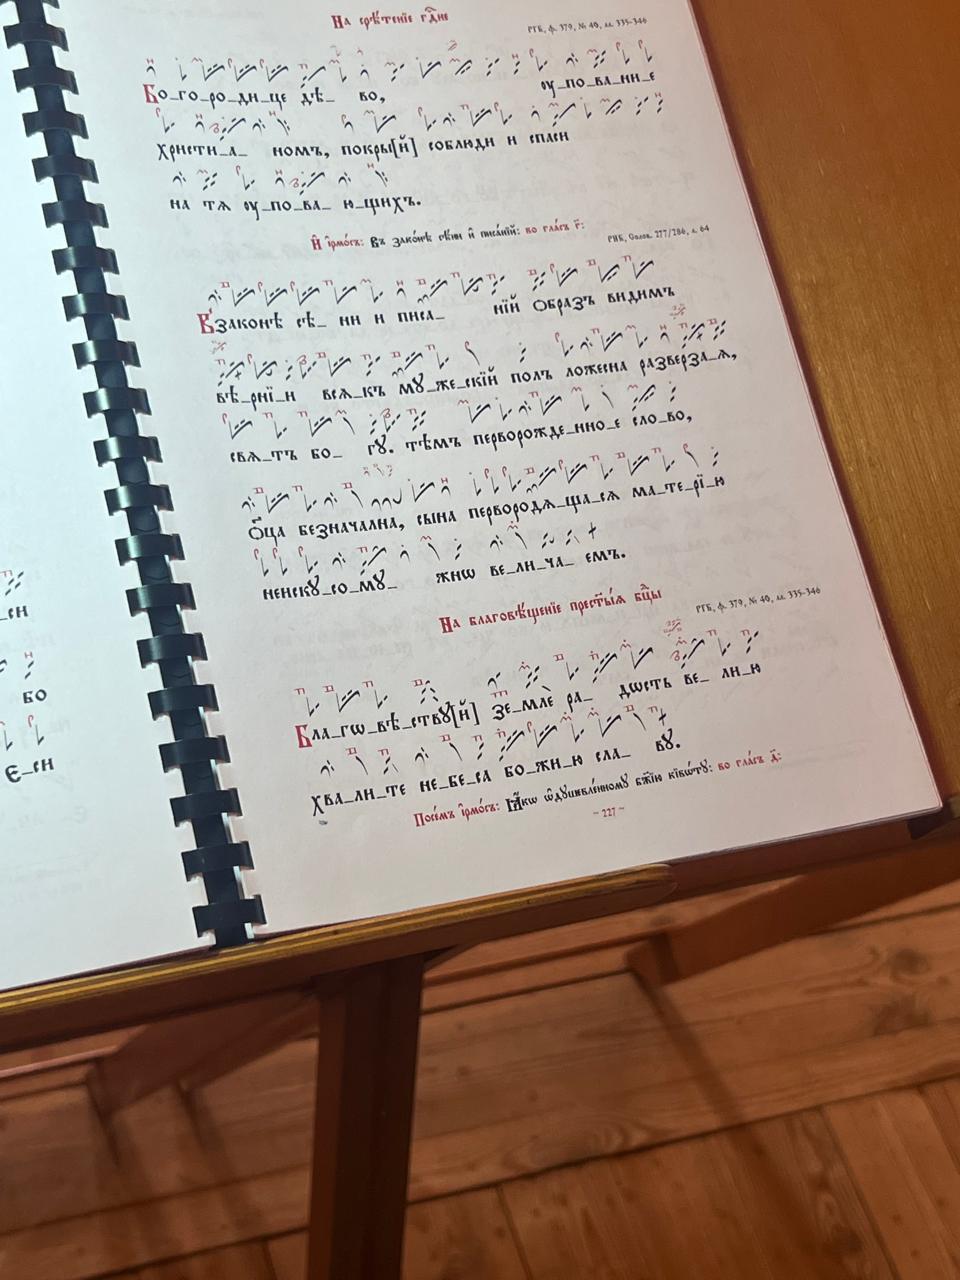 На срѣ́тенїе гд҇не
РГБ, ф. 379, № 40, лл. 335-346
Бо_го_ро_ди_це дѣ_ во, оу_по_ва_ни_е
христи_а_ номъ, покры[й] соблюди и спаси
на тѧ оу_по_ва_ ю_щихъ.
И҆ і҆рмо́съ: Въ зако́нѣ сѣ́ни и҆ писа́нїй: во гла́съ г҃:
РНБ, Солов. 277/286, л. 64
В̾законѣ сѣ_ ни и писа_ нїй образъ видимъ
вѣ_рнїи всѧ_къ мꙋ_же_скїй полъ ложесна разверза_ѧ,
свѧ_тъ бо_ гꙋ. тѣмъ перворожде_нно_е сло_во,
Ѻ҃ца безначална, сына первородѧ_ща_сѧ ма_те_рї_ю
неискꙋ_со_мꙋ_ жнѡ ве_ли_ча_ емъ.
На благовѣ́щенїе прест҃ы́ѧ бц҇ы
РГБ, ф. 379, № 40, лл. 335-346
Бла_гѡ_вѣ_ствꙋ[й] зе_млѐ ра_ дѡсть ве_ ли_ю
хва_ли_те не_бе_са бо_жи_ю сла_ вꙋ.
Посе́мъ і҆рмо́съ: Ꙗ҆́кѡ ѡ҆дꙋшевле́нномꙋ бж҃їю кївѡ́тꙋ: во гла́съ д҃:
~ 227 ~
_си
во
є_си